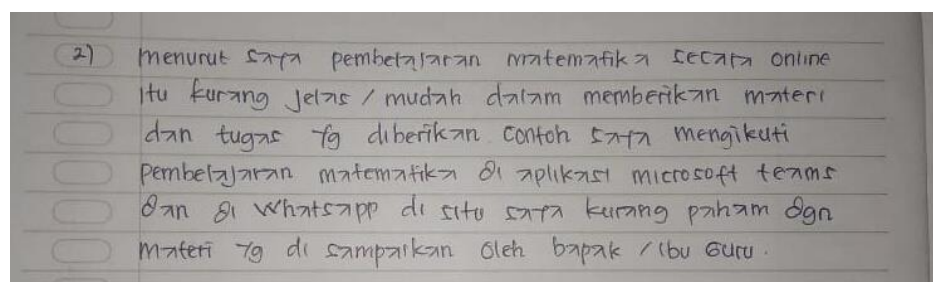 2) menurut saya pembelajaran matematika secara online
itu kurang jelas / mudah dalam memberikan materi
dan tugas yg diberikan. Contoh saya mengikuti
pembelajaran matematika di aplikasi microsoft teams
dan di Whatsapp di situ saya kurang paham dgn
materi yg di sampaikan oleh bapak / ibu Guru.